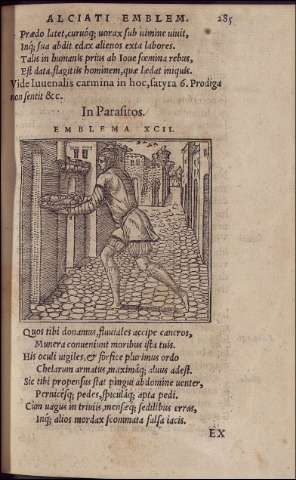 ALCIATI EMBLEM. 285
Prædo latet, curuóq; uorax sub uimine uiuit,
Inq; sua abdit edax alienos exta labores.
Talis in humanis prius ab Ioue fœmina rebus,
Est data, flagitijs hominem, quæ lædat iniquis.
Vide Iuuenalis carmina in hoc, satyra 6. Prodiga
non sentit &c.
In Parasitos.
EMBLEMA XCII.
Quos tibi donamus, fluuiales accipe cancros,
Munera conueniunt moribus ista tuis.
His oculi uigiles, & forfice plurimus ordo
Chelarum armatus, maximáq; aluus adest.
Sic tibi propensus stat pingui abdomine uenter,
Pernicésq; pedes, spiculáq; apta pedi.
Cùm uagus in triuijs, mensæq; sedilibus erras,
Inq; alios mordax scommata salsa iacis.
EX